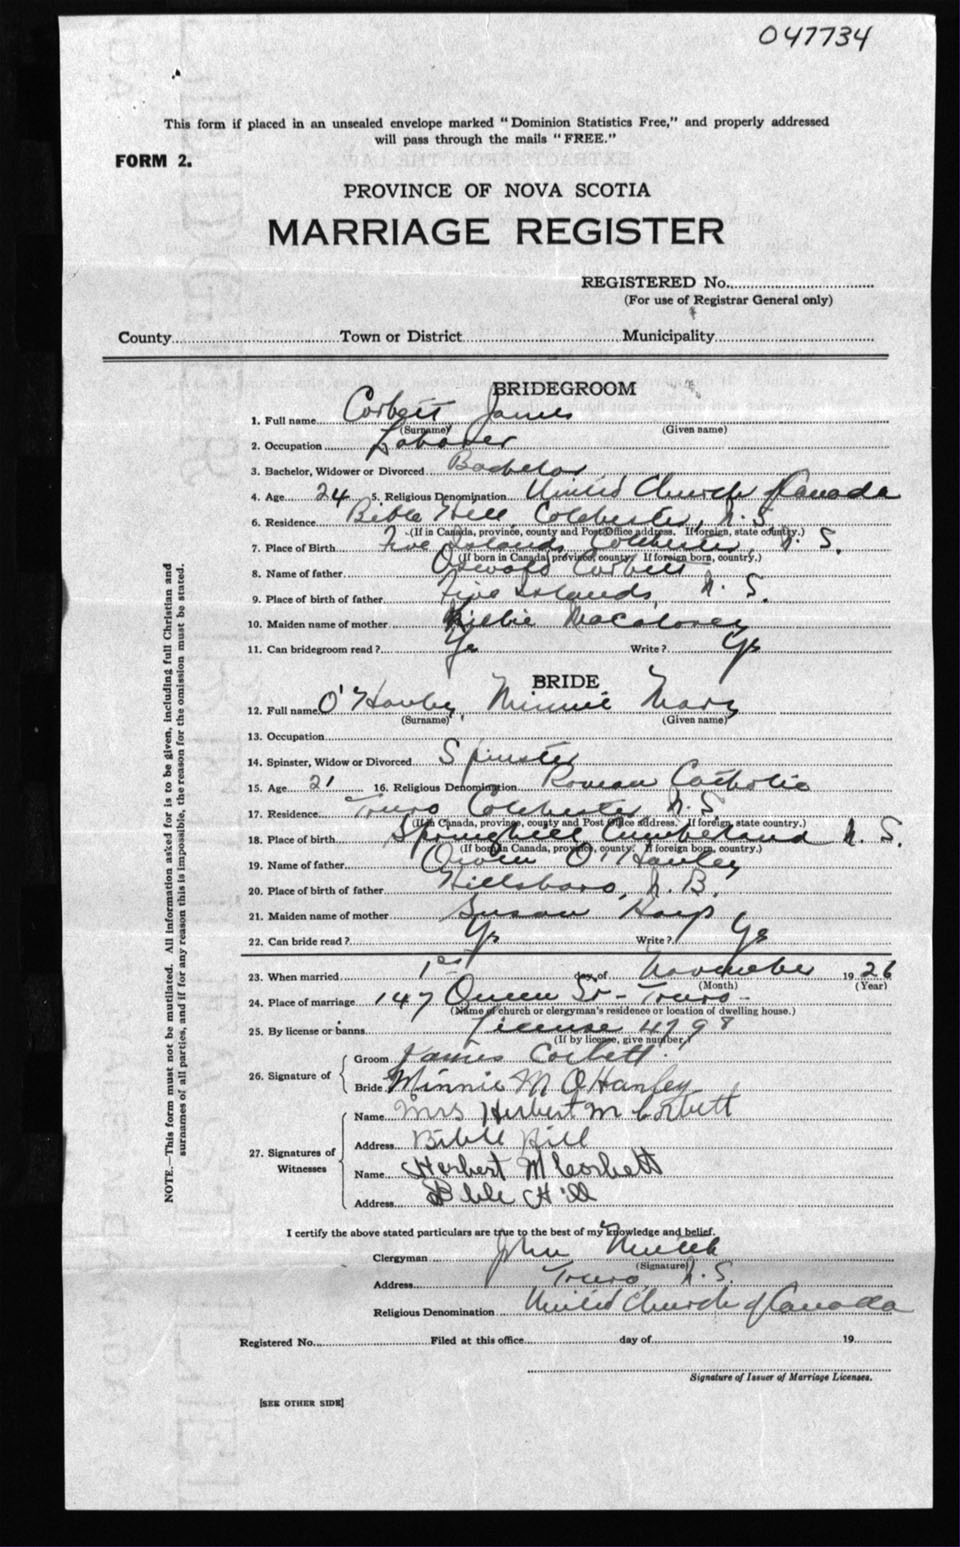 047734
This form if placed in an unsealed envelope marked "Dominion Statistics Free," and properly addressed
will pass through the mails "FREE."
FORM 2.
PROVINCE OF NOVA SCOTIA
MARRIAGE REGISTER
REGISTERED No.
(For use of Registrar General only)
County Town or District Municipality
BRIDEGROOM
1. Full name Corbett James
(Surname) (Given name)
2. Occupation Laborer
3. Bachelor, Widower or Divorced Bachelor
4. Age 24 5. Religious Denomination United Church of Canada
6. Residence Bible Hill Colchester, N. S.
(If in Canada, province, county and Post Office address. If foreign, state country.)
7. Place of Birth Five Islands Colchester, N. S.
(If born in Canada, province, county. If foreign born, country.)
8. Name of father Oswald Corbett
9. Place of birth of father Five Islands, N. S.
10. Maiden name of mother
11. Can bridegroom read? Yes Write? Yes
BRIDE
12. Full name O'Hanley, Minnie Mary
(Surname) (Given name)
13. Occupation
14. Spinster, Widow or Divorced Spinster
15. Age 21 16. Religious Denomination Roman Catholic
17. Residence Truro Colchester N. S.
(If in Canada, province, county and Post Office address. If foreign, state country.)
18. Place of birth Springhill Cumberland N. S.
(If born in Canada, province, county. If foreign born, country.)
19. Name of father Owen O'Hanley
20. Place of birth of father Hillsboro, N. B.
21. Maiden name of mother Susan
22. Can bride read? Yes Write? Yes
23. When married 1st day of November 1926
(Month) (Year)
24. Place of marriage 147 Queen St - Truro -
(Name of church or clergyman's residence or location of dwelling house.)
25. By license or banns License 4798
(If by license, give number.)
26. Signature of
Groom James Corbett.
Bride Minnie M O'Hanley
27. Signatures of Witnesses
Name Mrs Herbert M Corbett
Address Bible Hill
Name Herbert M Corbett
Address Bible Hill
I certify the above stated particulars are true to the best of my knowledge and belief.
Clergyman John
(Signature)
Address Truro, N. S.
Religious Denomination United Church of Canada
Registered No. Filed at this office day of 19
Signature of Issuer of Marriage Licenses.
[SEE OTHER SIDE]
NOTE.—This form must not be mutilated. All information asked for is to be given, including full Christian and
surnames of all parties, and if for any reason this is impossible, the reason for the omission must be stated.